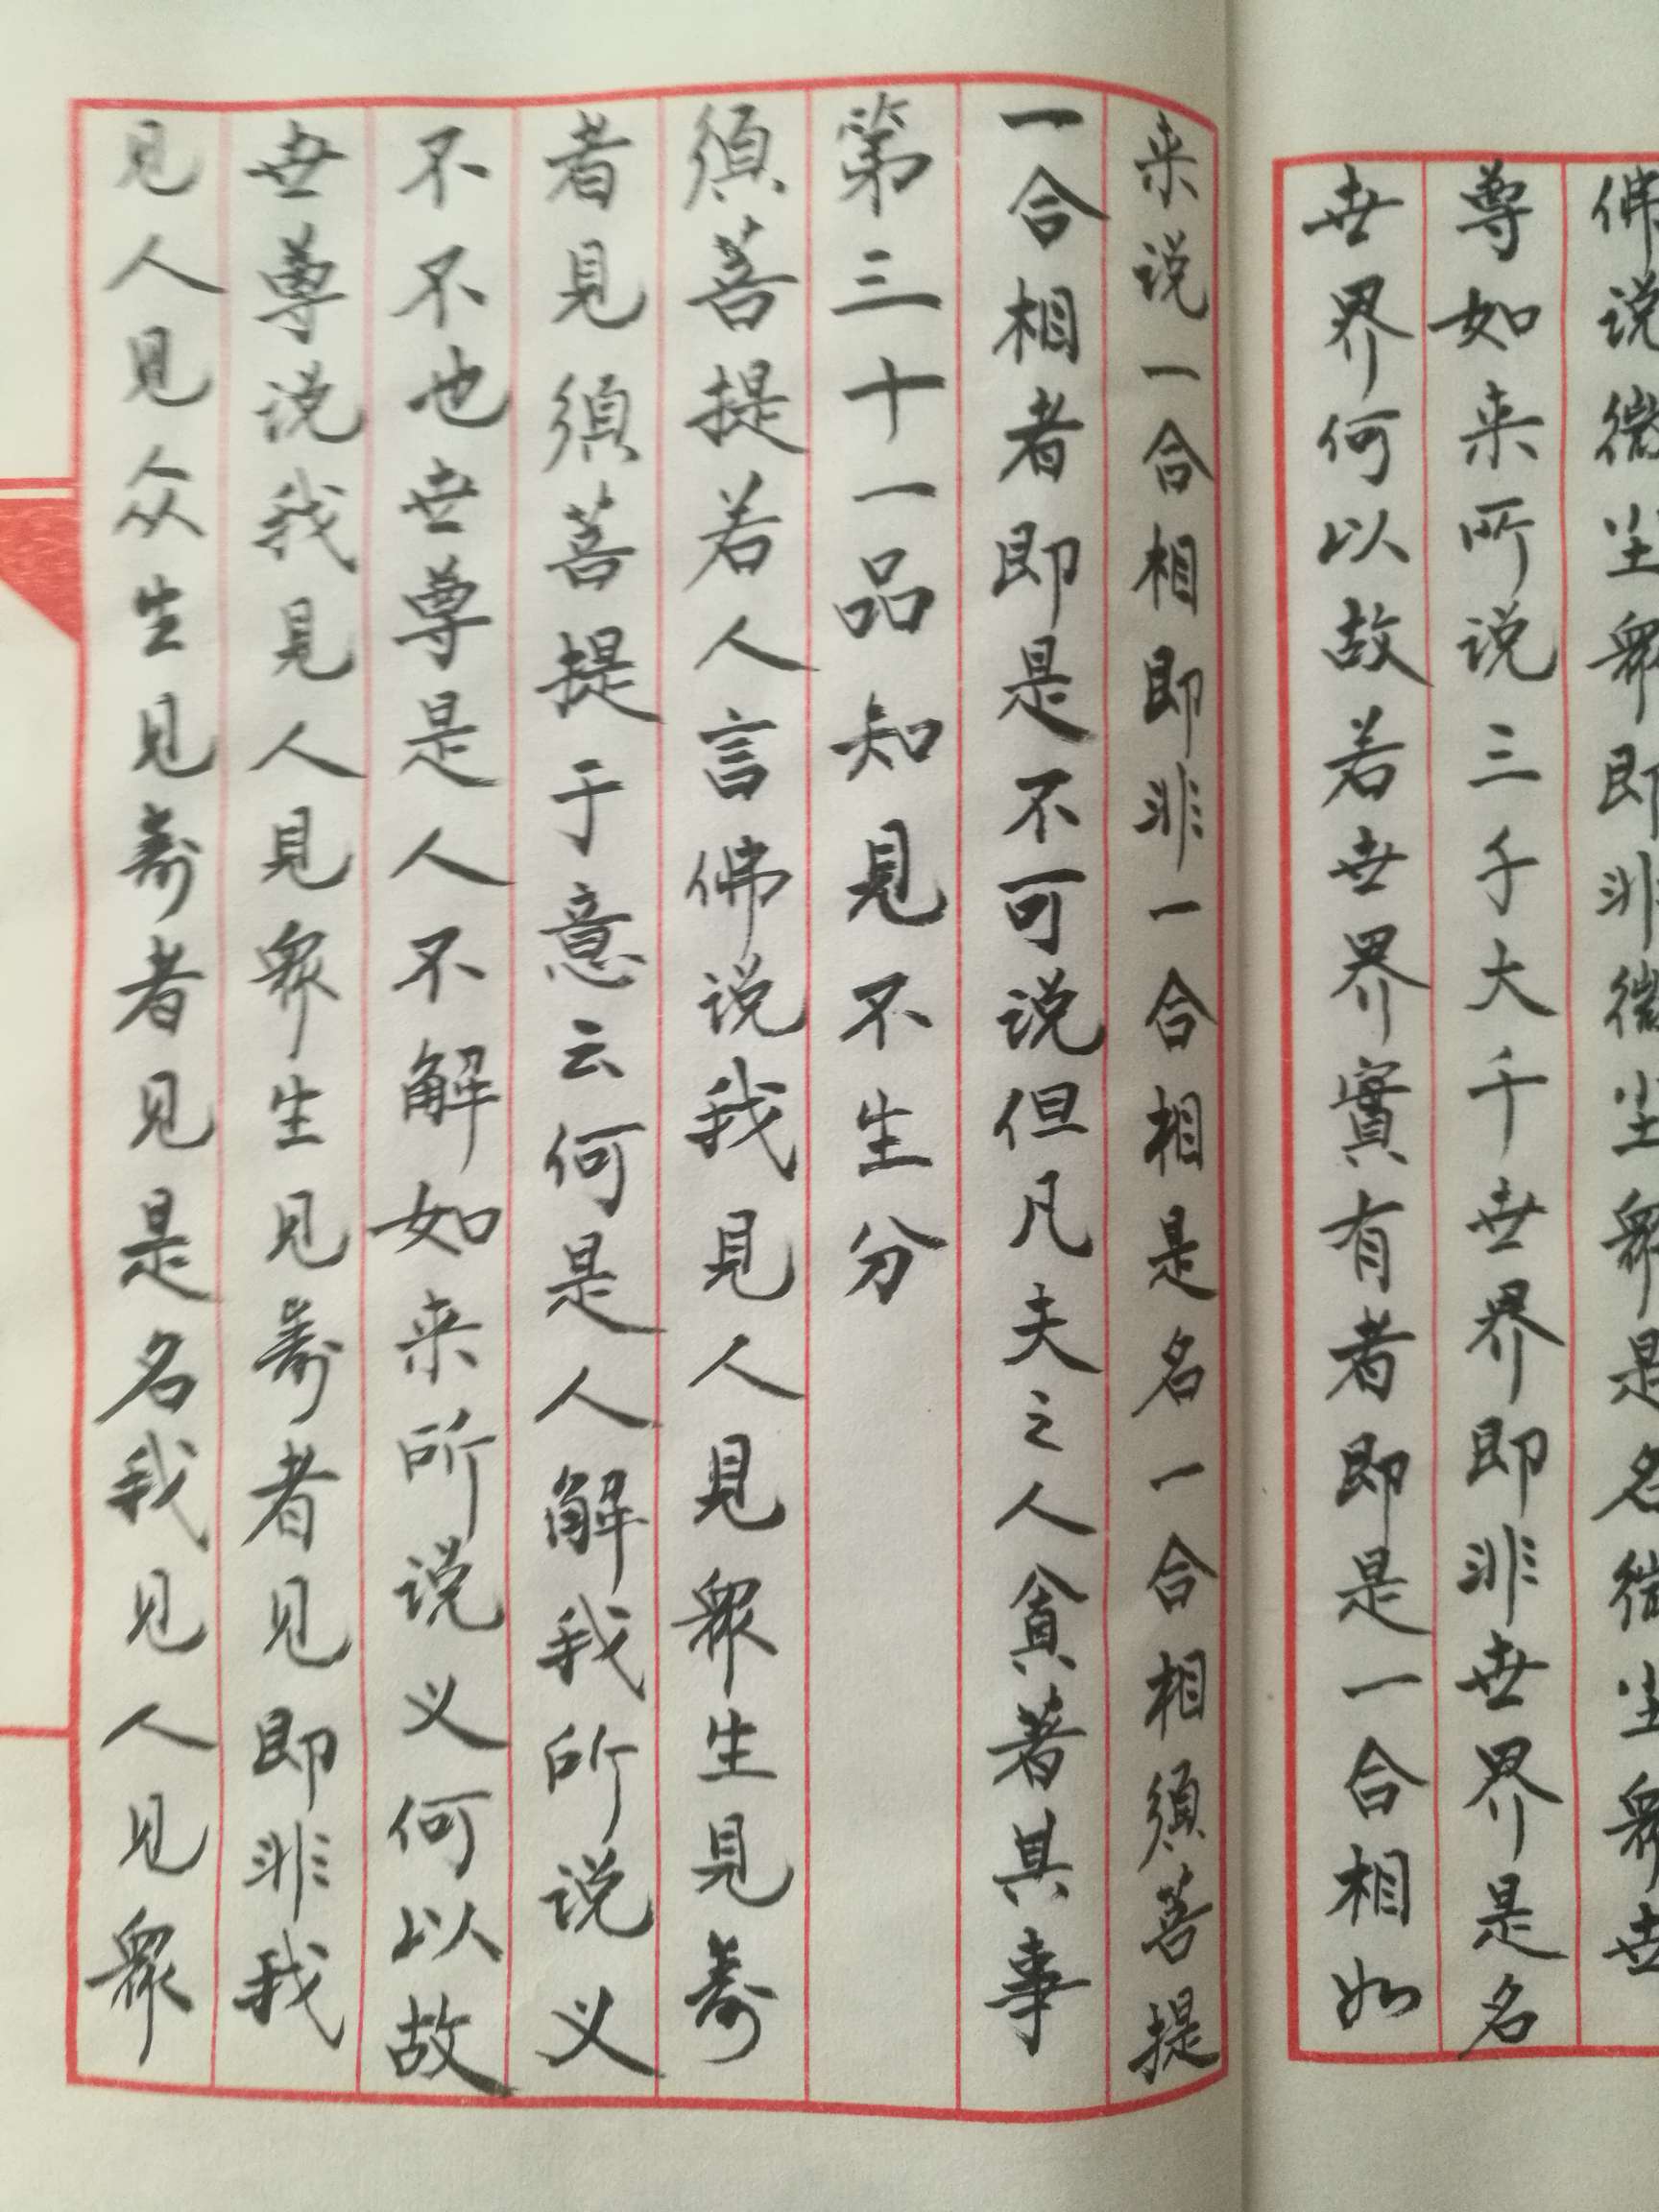 佛说微尘衆即非微尘衆是名微尘衆世
尊如来所说三千大千世界即非世界是名
世界何以故若世界實有者即是一合相如
来说一合相即非一合相是名一合相須菩提
一合相者即是不可说但凡夫之人貪著其事
第三十一品知見不生分
須菩提若人言佛说我見人見衆生見寿
者見須菩提于意云何是人解我所说义
不不也世尊是人不解如来所说义何以故
世尊说我見人見衆生見寿者見即非我
見人見众生見寿者見是名我見人見衆